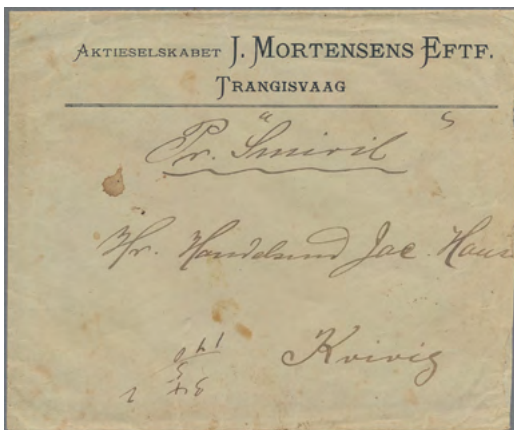 AKTIESELSKABET J. MORTENSENS EFTF.
TRANGISVAAG
Pr. "Smiril"
Hr. Handelsmd Jac. Hans
Kvivig